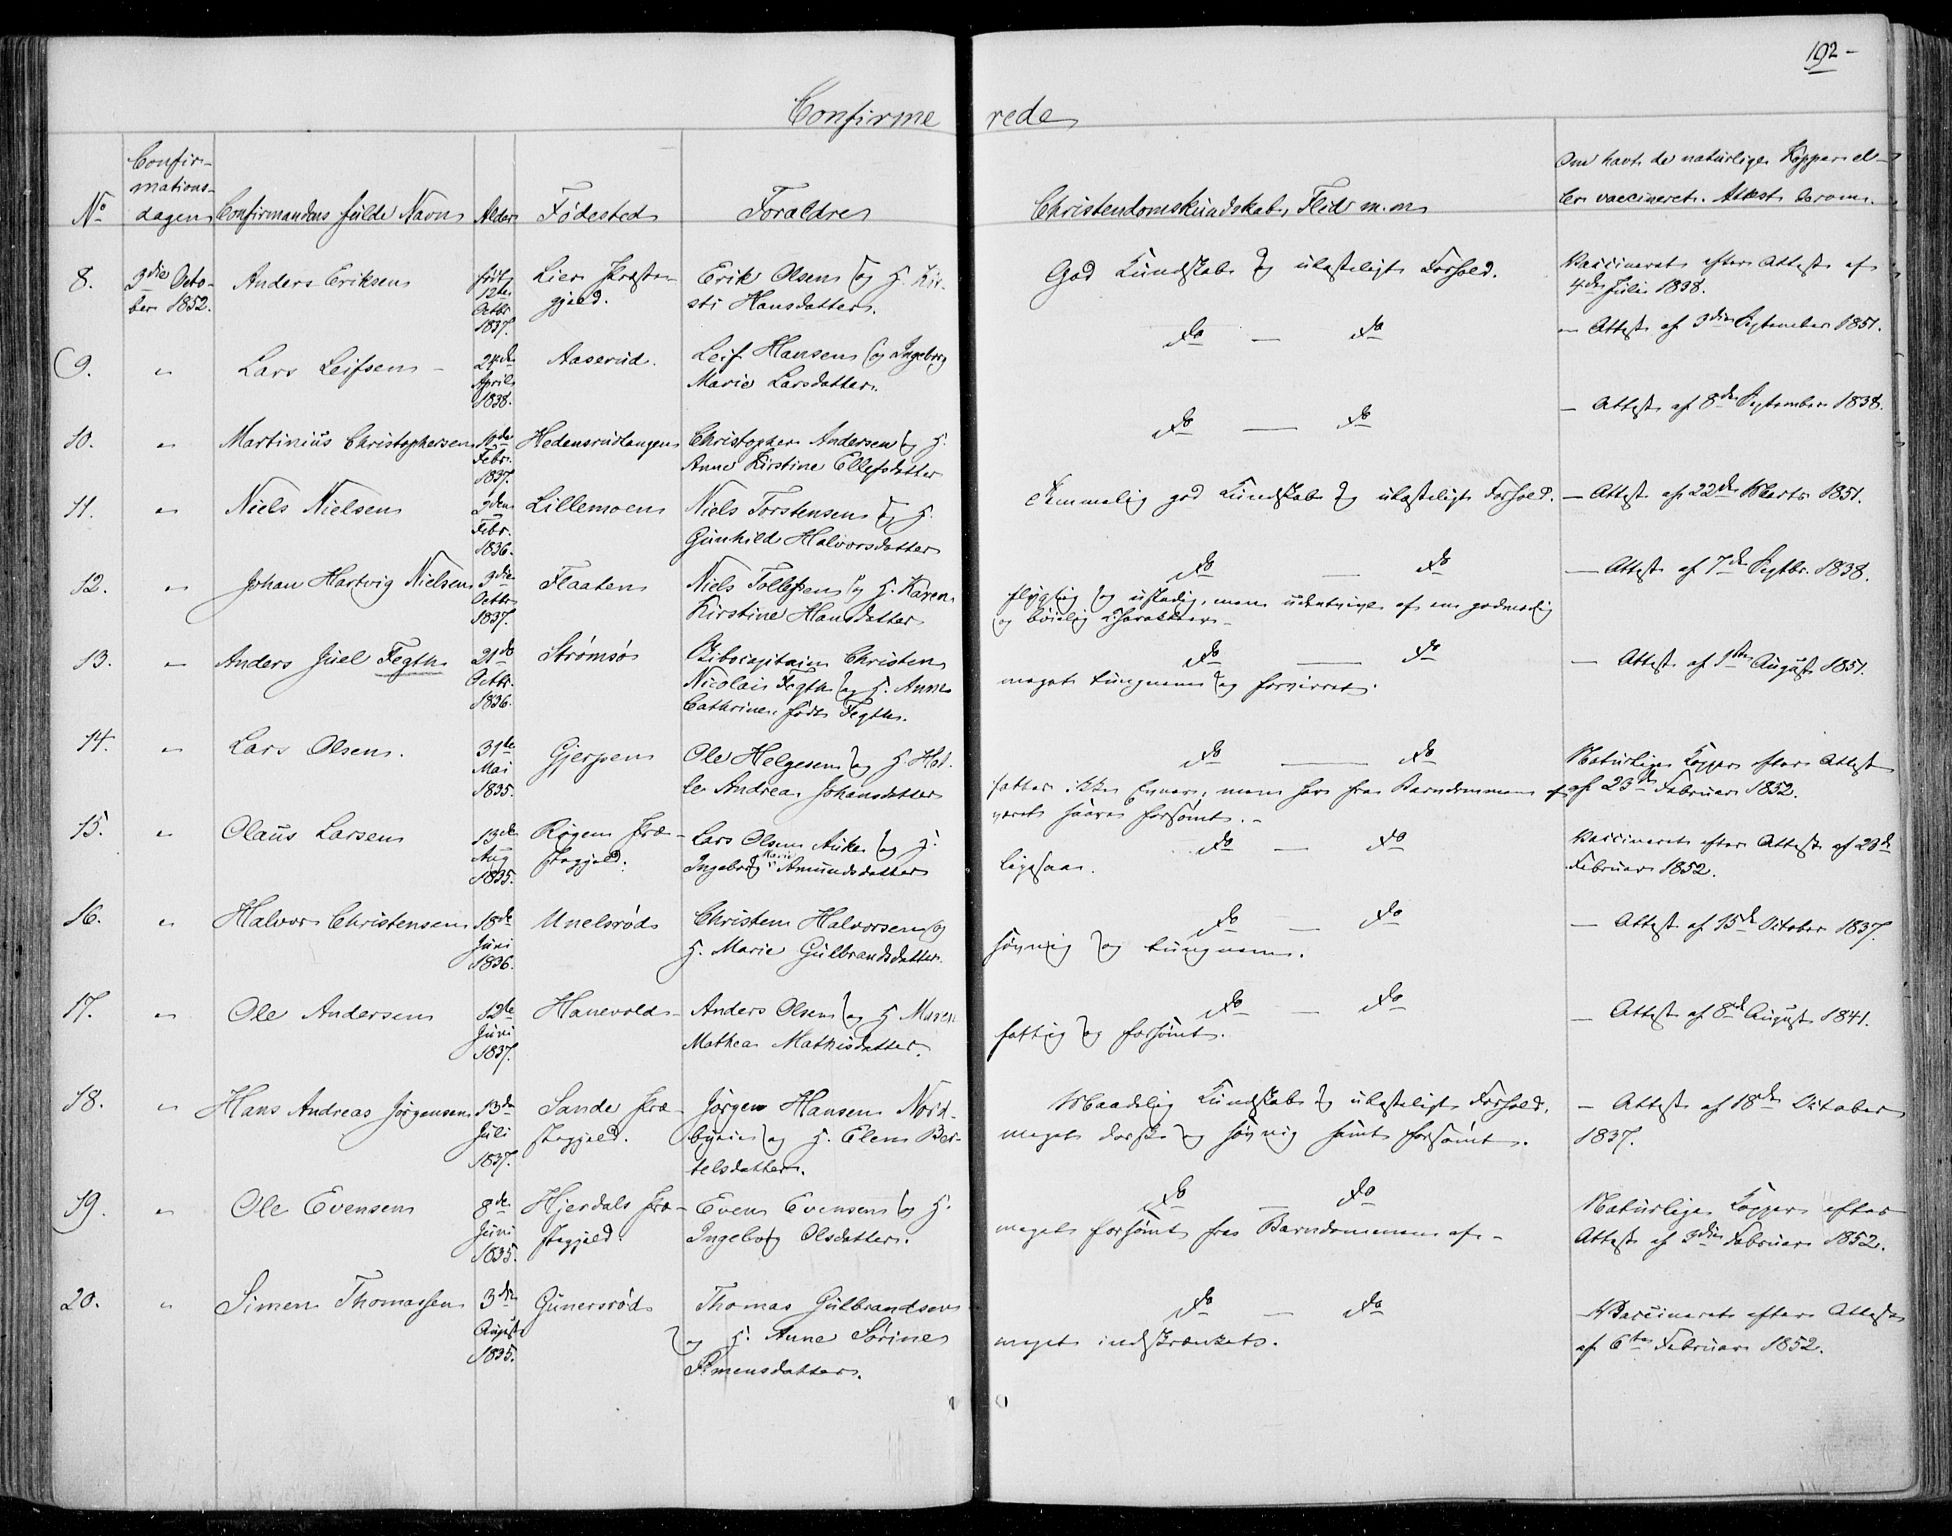 192-
Confirmerede
No
Confirmationsdagen
Confirmandens fulde Navn
Alder
Fødested
Forældre
Christendomskundskab, Flid m. m.
Om havt de naturlige Kopper eller vaccineret. Attest derom.
8.
3die October 1852.
Anders Eriksen
født 12te Octbr 1837.
Lier Præstegjeld.
Erik Olsen og H. Kirsti Hansdatter.
God Kundskab og ulasteligt Forhold.
Vaccineret efter Attest af 4de Juli 1838.
9.
"
Lars Leifsen
24de April 1838.
Aaserud.
Leif Hansen og Ingeborg Marie Larsdatter.
do — do
— Attest af 3die September 1851.
10.
"
Martinius Christophersen
Febr. 1837.
Hedensrudtangen
Christopher Andersen og H. Anne Kirstine Ellefsdatter
do — do
— Attest af 8de September 1838.
11.
"
Niels Nielsen
2den Febr. 1836.
Lillemoen
Niels Torstensen og H. Gunhilde Halvorsdatter
Temmelig god Kundskab og ulasteligt Forhold.
— Attest af 22de Marts 1851.
12.
"
Johan Hartvig Nielsen
3die Octbr 1837.
Flaaten
Niels Tollefsen og H. Karen Kirstine Hansdatter
do — do
flygtig og ustadig, men af en godmodig og bøielig Charakter.
— Attest af 7de Septbr. 1838.
13.
"
Anders Juel Fegth
21de Octbr. 1836.
Strømsø
Skibscapitain Christen Nicolai Fegth og H. Anne Cathrine, født Fegth.
do — do
meget tungnem og forvirret.
— Attest af 1ste August 1851.
14.
"
Lars Olsen.
31te Mai 1835.
Gjerpen
Ole Helgesen og H. Helle Andrea Johansdatter
do — do
fatter ikke Evner, men har fra Barndommen af været saare forsømt.
Naturlige Kopper efter Attest af 23de Februar 1852.
15.
"
Claus Larsen
13de Aug 1835.
Røgen Præstegjeld.
Lars Olsen Auke og H. Ingeborg Marie Amundsdatter
do — do
ligesaa.
Vaccineret efter Attest af 23de Februar 1852.
16.
"
Halvor Christensen
18de Juni 1836.
Unelsrød
Christen Halvorsen og H. Marie Gulbrandsdatter.
do — do
søvnig og tungnem.
— Attest af 15de October 1837.
17.
"
Ole Andersen
12te Juni 1837.
Hanevold
Anders Olsen og H. Maren Mathea Mathisdatter.
do — do
fattig og forsømt.
— Attest af 8de August 1841.
18.
"
Hans Andreas Jørgensen
13de Juli 1837.
Sande Præstegjeld.
Jørgen Hansen Nordbyeie og H. Elen Bertelsdatter.
Maadelig Kundskab og ulasteligt Forhold. meget dorsk og søvnig samt forsømt.
— Attest af 18de October 1837.
19.
"
Ole Evensen
8de Juni 1835.
Hjerdals Præstegjeld.
Even Evensen og H. Ingeborg Olsdatter.
do — do
meget forsømt fra Barndommen af.
Naturlige Kopper efter Attest af 3die Februar 1852.
20.
"
Simen Thomassen
3die August 1835.
Gunersrød
Thomas Gulbrandsen og H. Anne Sørine Simensdatter.
do — do
meget indskrænket.
Vaccineret efter Attest af 6te Februar 1852.